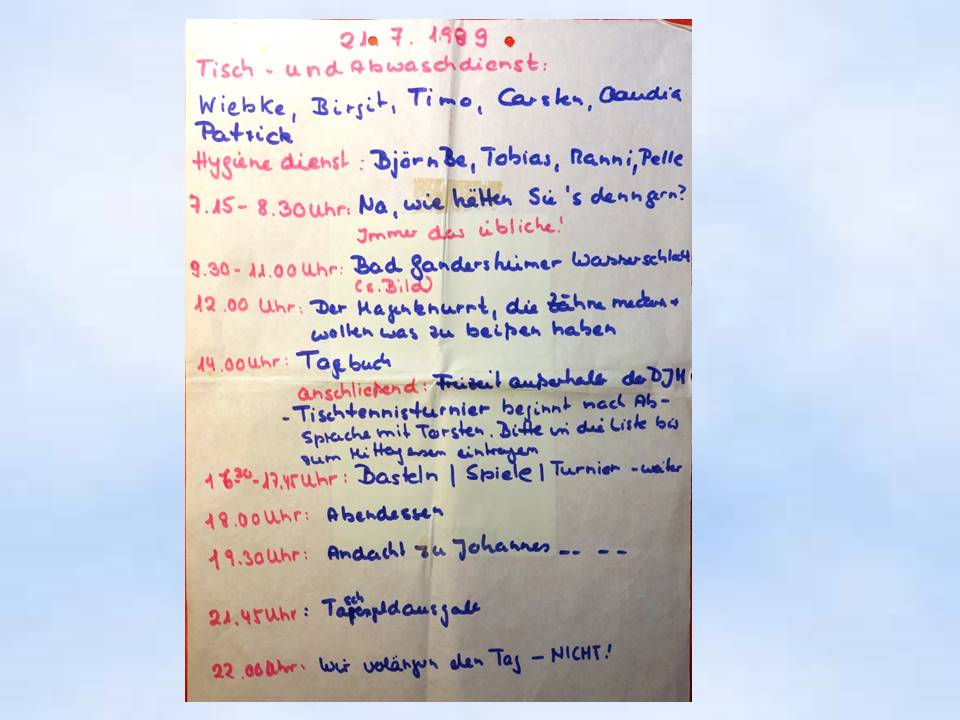 21. 7. 1989
Tisch - und Abwaschdienst:
Wiebke, Birgit, Timo, Carsten, Claudia
Patrick
Hygiene dienst: Björn Be, Tobias, Manni, Pelle
7.15 - 8.30 Uhr: Na, wie hätten Sie's denn gern?
Immer das übliche!
9.30 - 11.00 Uhr: Bad Gandersheimer Wasserschlacht
(s. Bild)
12.00 Uhr: Der Magen knurrt, die Zähne meckern +
wollen was zu beißen haben
14.00 Uhr: Tagebuch
anschließend: Freizeit außerhalb der DJH
- Tischtennisturnier beginnt nach Ab-
sprache mit Torsten. Bitte in die Liste bis
zum Mittagessen eintragen
16.30 - 17.45 Uhr: Basteln / Spiele / Turnier - weiter
18.00 Uhr: Abendessen
19.30 Uhr: Andacht zu Johannes -- --
21.45 Uhr:
22.00 Uhr: Wir volängern den Tag - NICHT!